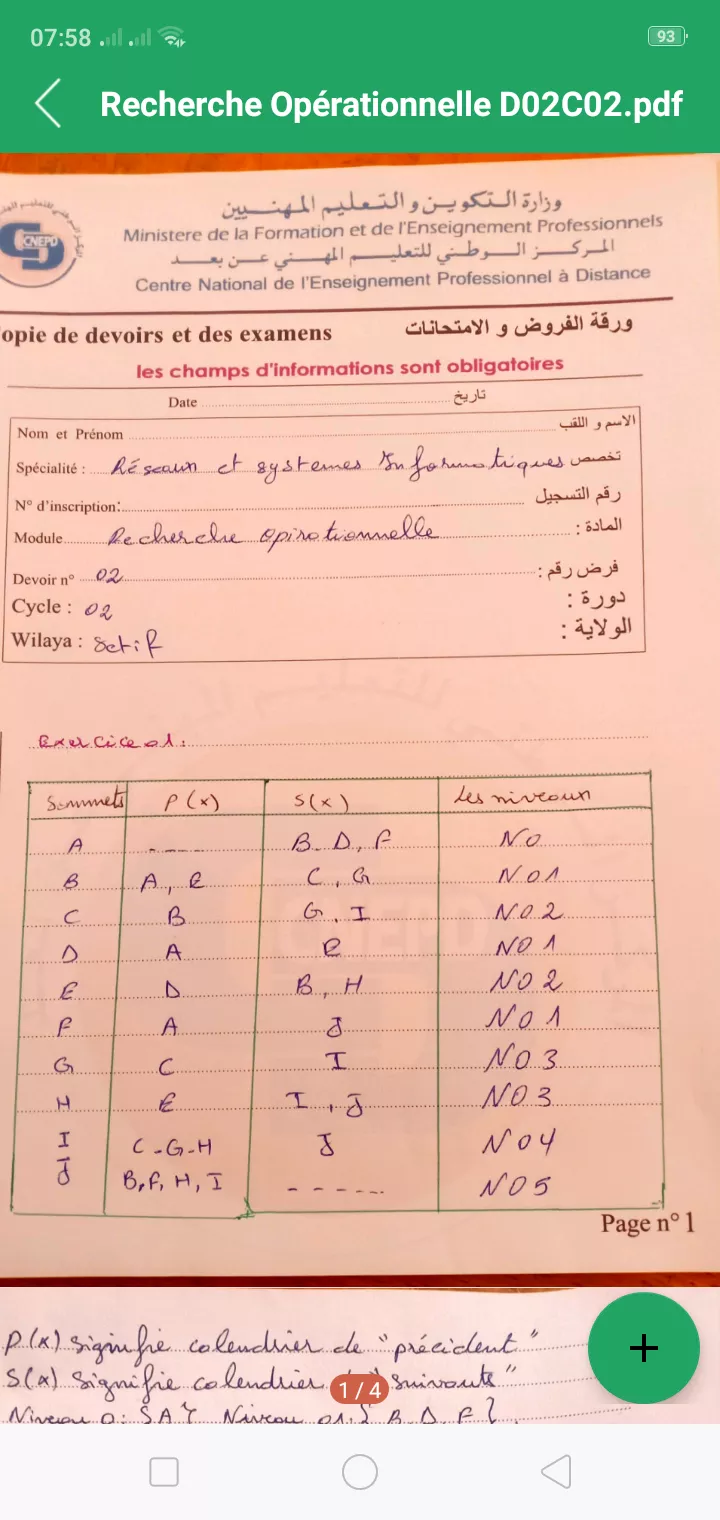 07:58
93
Recherche Opérationnelle D02C02.pdf
وزارة التكوين و التعليم المهنيين
Ministere de la Formation et de l'Enseignement Professionnels
المركز الوطني للتعليم المهني عن بعد
Centre National de l'Enseignement Professionnel à Distance
CNEPD
opie de devoirs et des examens ورقة الفروض و الامتحانات
les champs d'informations sont obligatoires
Date تاريخ
Nom et Prénom الاسم و اللقب
Spécialité : Réseaux et systemes Informatiques تخصص
N° d'inscription: رقم التسجيل
Module Recherche opirotionnelle المادة :
Devoir n° 02 فرض رقم :
Cycle : 02 دورة :
Wilaya : Setif الولاية :
Exercice 01:
Sommets P(x) S(x) Les niveaux
A ----- B-D, F NO
B A, E C, G NO1
C B G, I NO2
D A E NO1
E D B, H NO2
F A J NO1
G C I NO3
H E I, J NO3
I C-G-H J NO4
J B,F, H, I ------ NO5
Page n° 1
P(x) signifie calendrier de "précident"
S(x) signifie calendrier suivants"
1 / 4
Niveau 0: {A} Niveau 01: { B, D, F }
+